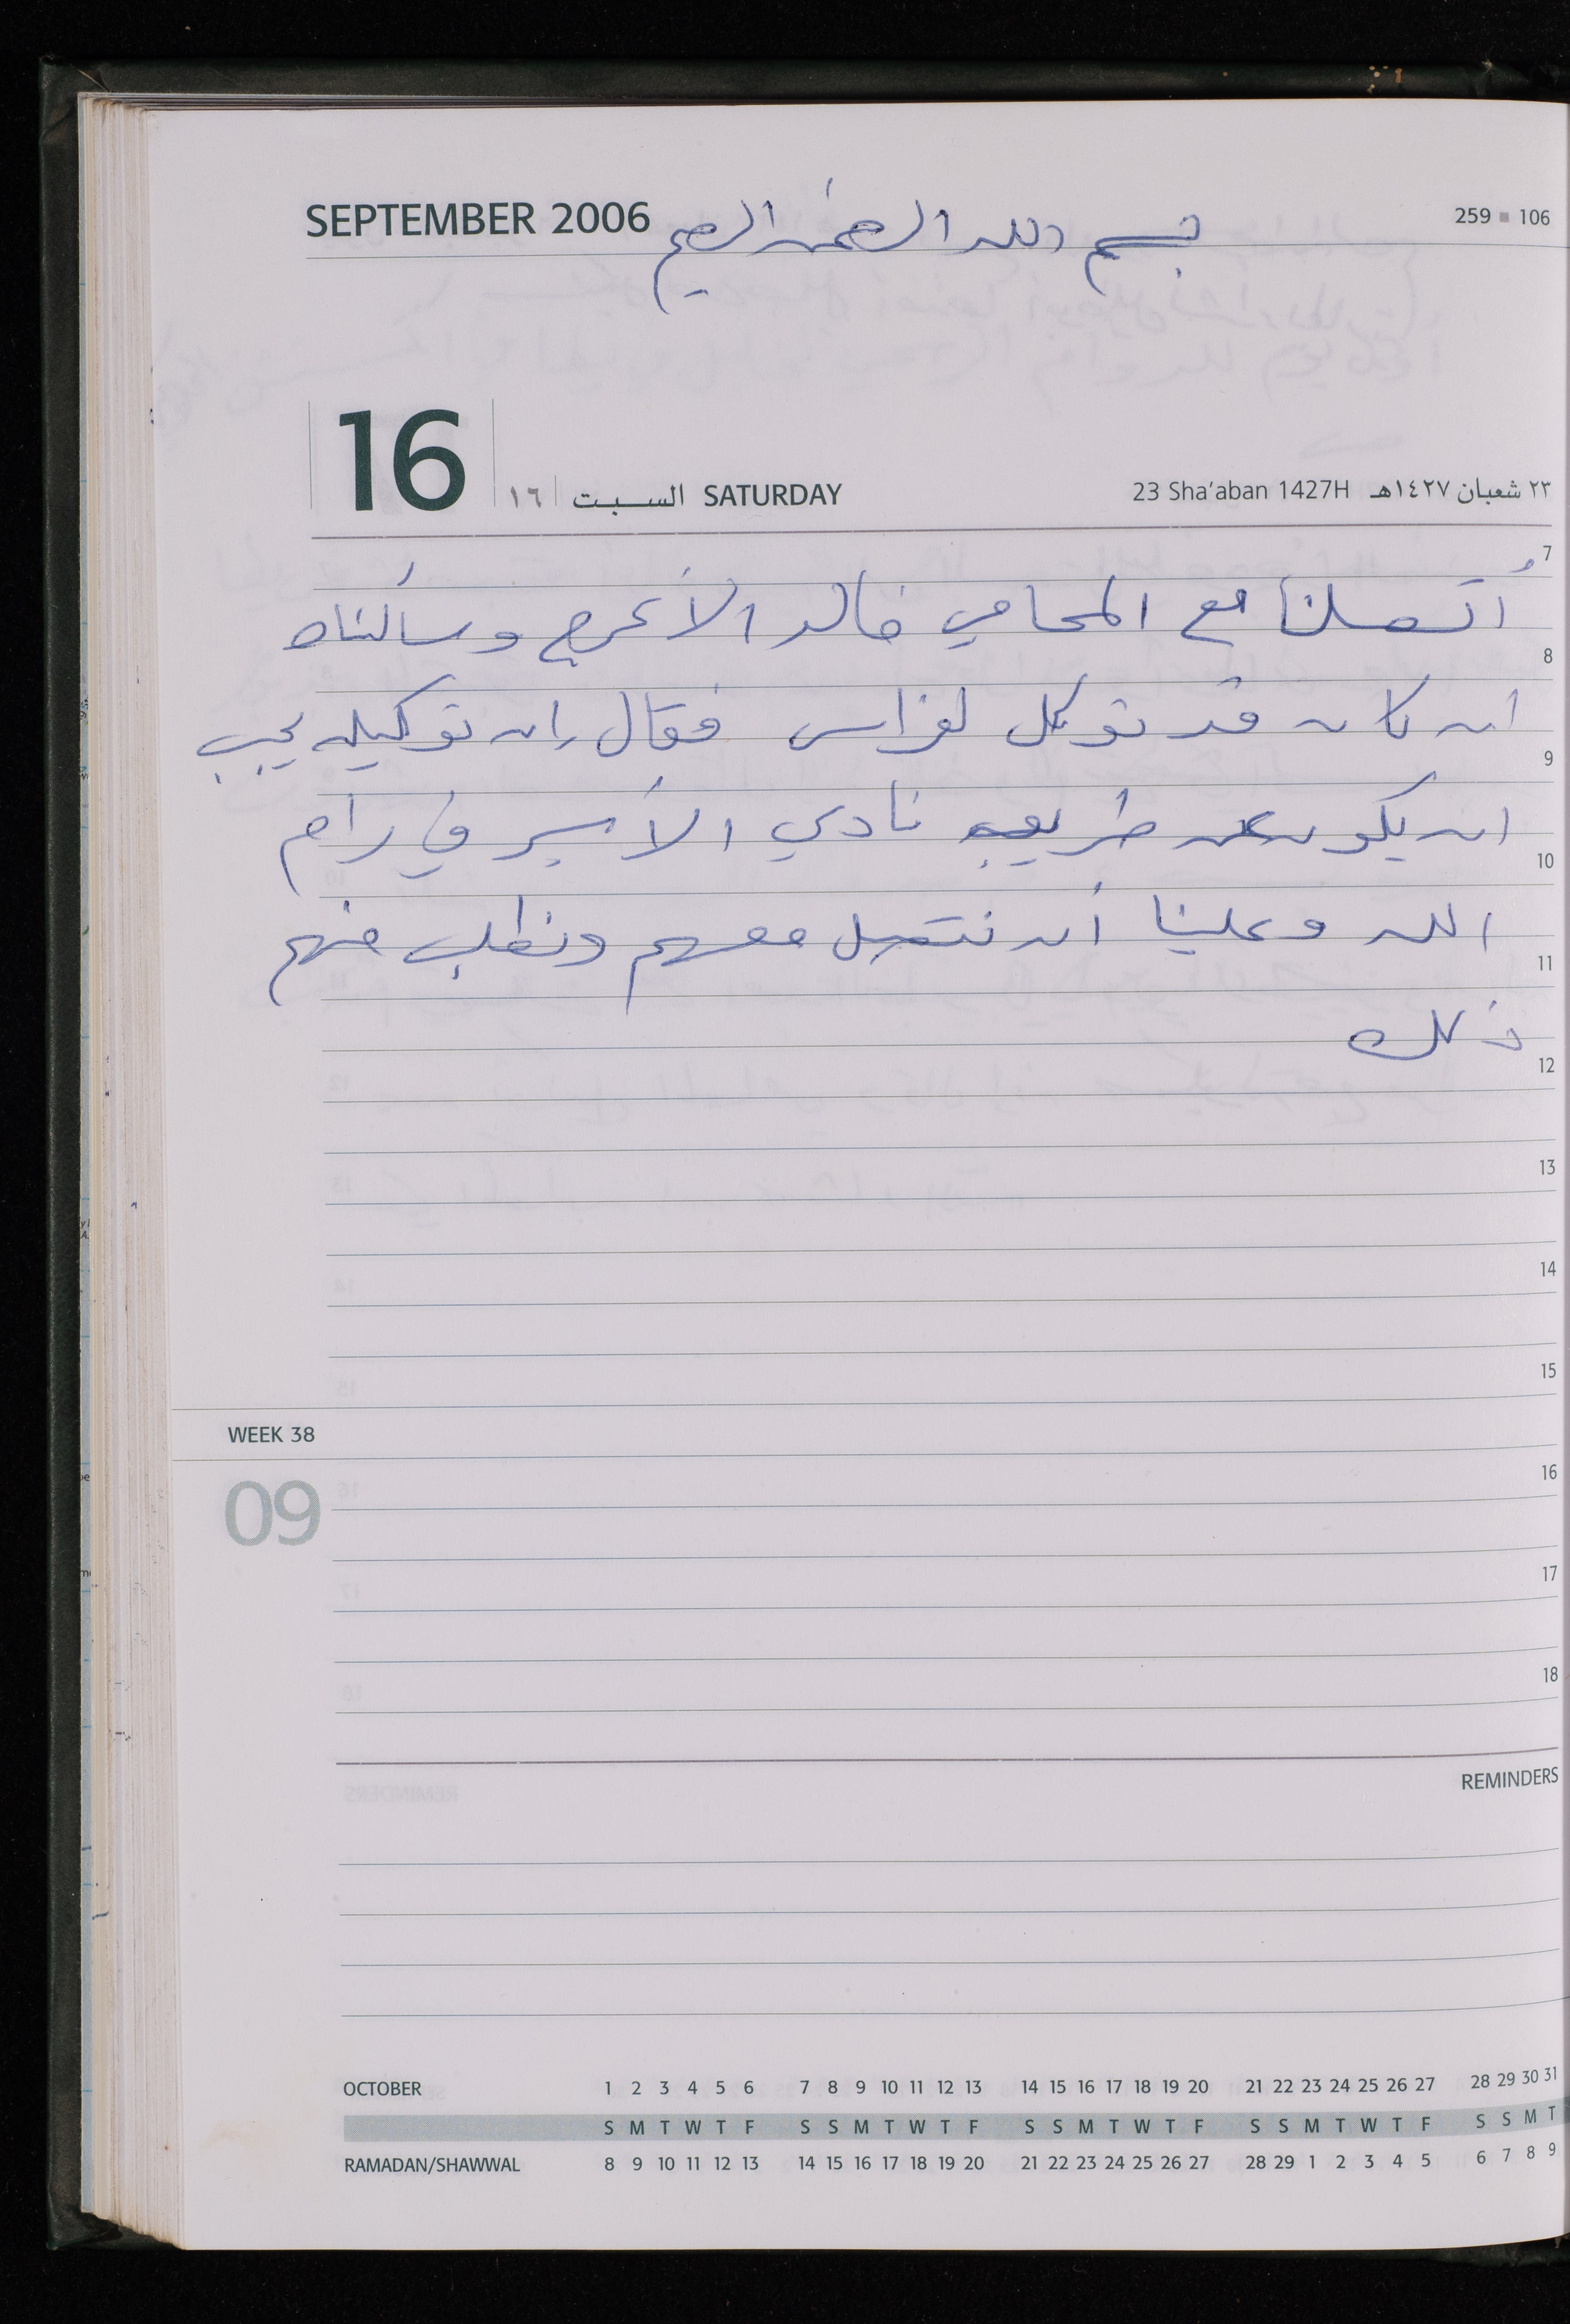 SEPTEMBER 2006 بسم الله الرحمن الرحيم 259 ▪ 106
16 ١٦ السبت SATURDAY 23 Sha'aban 1427H ٢٣ شعبان ١٤٢٧هـ
7
أتصلنا مع المحامي خالد الأعرج وسألناه
8
ان كان قد توكل لفراس فقال إن توكيله يجب
9
ان يكون عن طريق نادي الأسير في رام
10
الله وعلينا أن نتصل معهم ونطلب منهم
11
ذلك
12
13
14
15
WEEK 38
16
09
17
18
REMINDERS
OCTOBER 1 2 3 4 5 6 7 8 9 10 11 12 13 14 15 16 17 18 19 20 21 22 23 24 25 26 27 28 29 30 31
S M T W T F S S M T W T F S S M T W T F S S M T W T F S S M T
RAMADAN/SHAWWAL 8 9 10 11 12 13 14 15 16 17 18 19 20 21 22 23 24 25 26 27 28 29 1 2 3 4 5 6 7 8 9